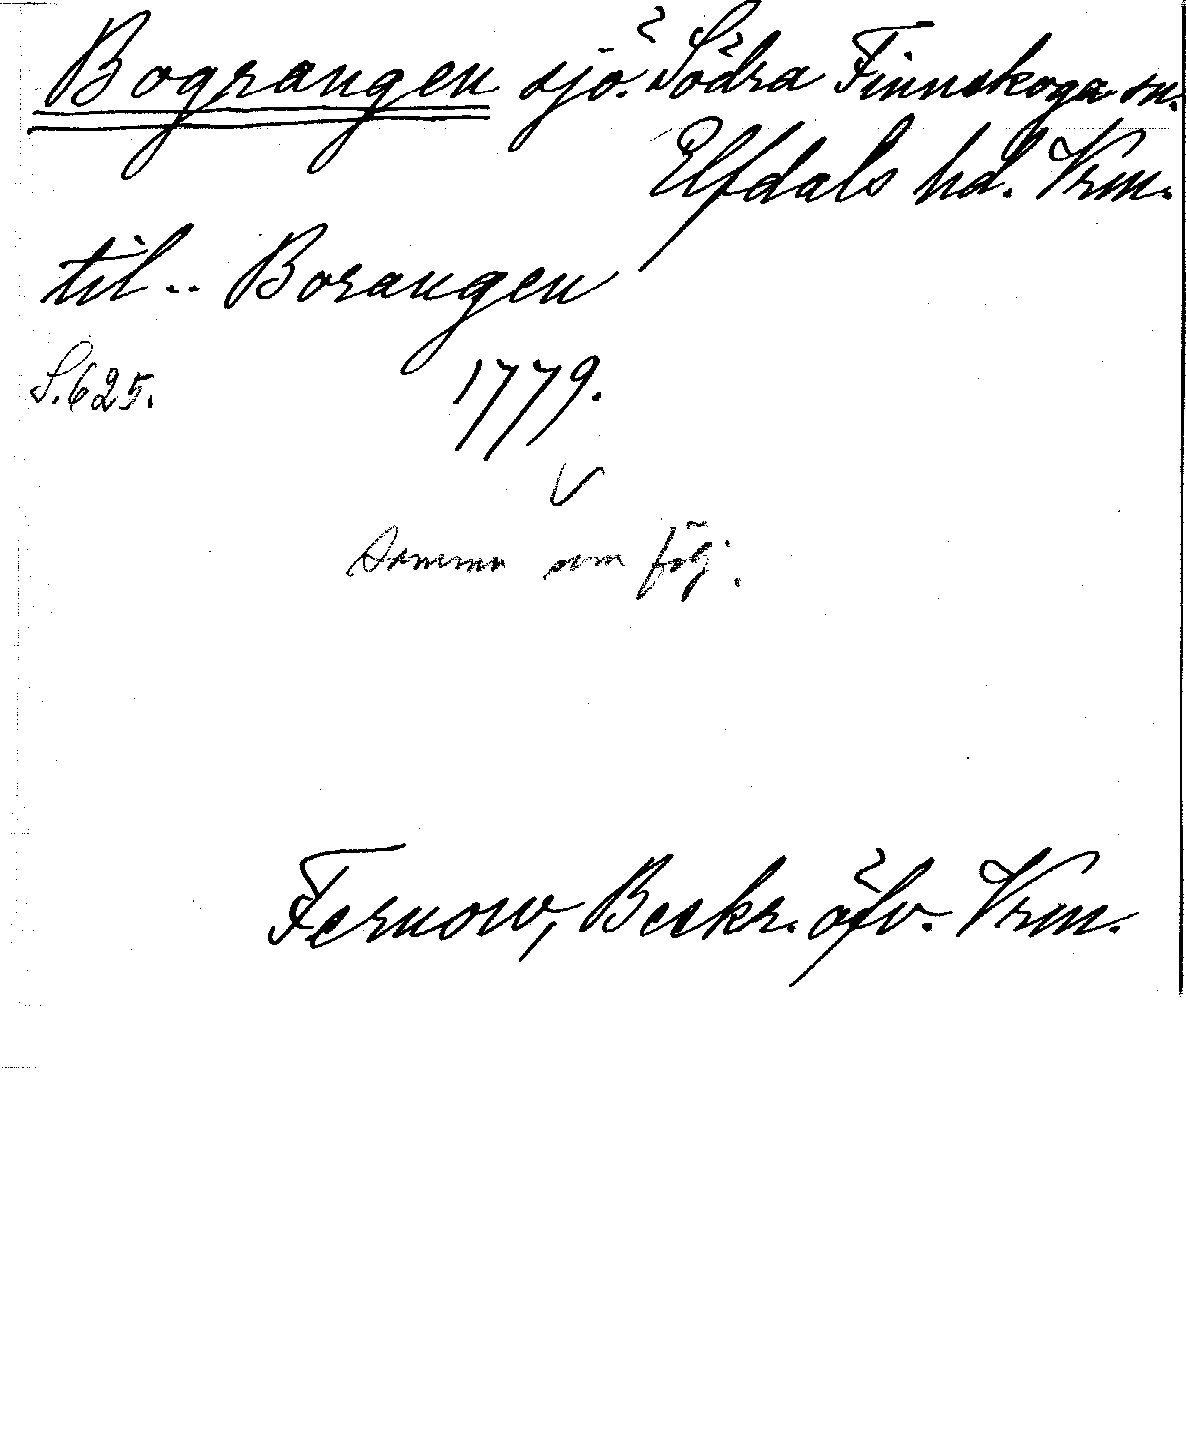 Bograngen sjö. Södra Finnskoga sn.
Elfdals hd. Vrm.
til.. Borangen
S. 625. 1779.
Samma som följ.
Fernow, Beskr. öfv. Vrm.